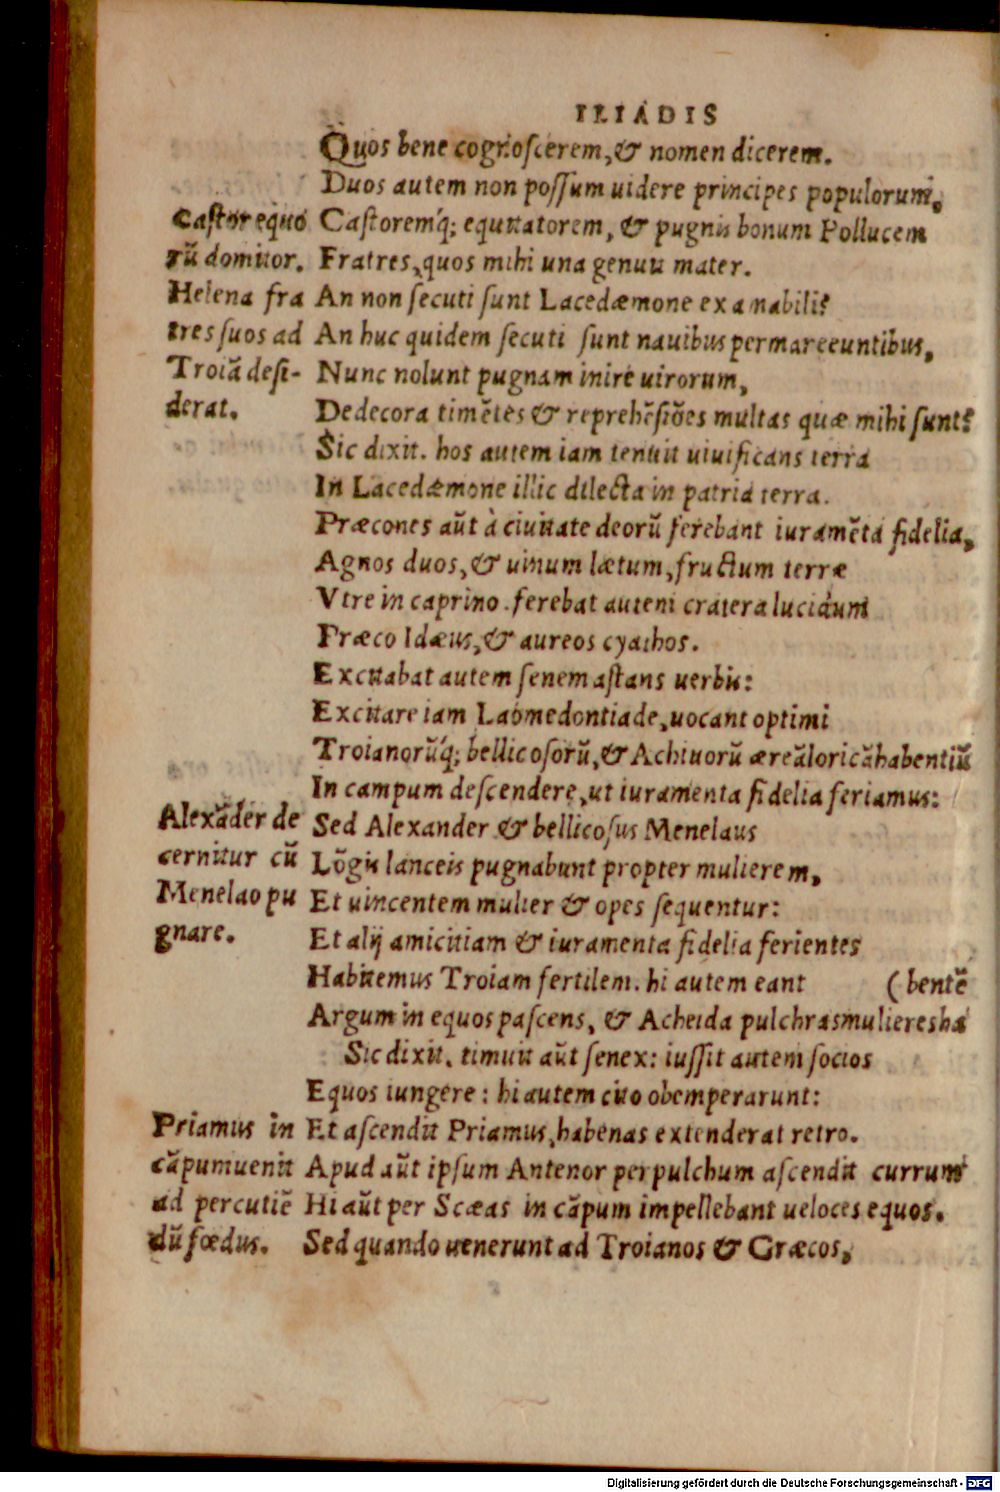 ILIADIS
Quos bene cognoſcerem, & nomen dicerem.
Duos autem non poſſum uidere principes populorum,
Caſtoremq́; equitatorem, & pugnis bonum Pollucem
Fratres, quos mihi una genuit mater.
An non ſecuti ſunt Lacedæmone ex amabili?
An huc quidem ſecuti ſunt nauibus per mare euntibus,
Nunc nolunt pugnam inire uirorum,
Dedecora timẽtes & reprehẽſiões multas quæ mihi ſunt?
Sic dixit. hos autem iam tenuit uiuificans terra
In Lacedæmone illic dilecta in patria terra.
Præcones aũt à ciuitate deorũ ferebant iuramẽta fidelia,
Agnos duos, & uinum lætum, fructum terræ
Vtre in caprino. ferebat autem cratera lucidum
Præco Idæus, & aureos cyathos.
Excitabat autem ſenem aſtans uerbis:
Excitare iam Laomedontiade, uocant optimi
Troianorũq́; bellicoſorũ, & Achiuorũ æreãloricãhabentiũ
In campum deſcendere, ut iuramenta fidelia feriamus:
Sed Alexander & bellicoſus Menelaus
Lõgis lanceis pugnabunt propter mulierem,
Et uincentem mulier & opes ſequentur:
Et alij amicitiam & iuramenta fidelia ferientes
Habitemus Troiam fertilem. hi autem eant (bentẽ
Argum in equos paſcens, & Acheida pulchras mulieres ha
Sic dixit. timuit aũt ſenex: iuſſit autem ſocios
Equos iungere: hi autem cito obemperarunt:
Et aſcendit Priamus, habenas extenderat retro.
Apud aũt ipſum Antenor perpulchum aſcendit currum
Hi aũt per Scæas in cãpum impellebant ueloces equos.
Sed quando uenerunt ad Troianos & Græcos,
Caſtor equo
rũ domitor.
Helena fra
tres ſuos ad
Troiã deſi-
derat.
Alexãder de
cernitur cũ
Menelao pu
gnare.
Priamus in
cãpum uenit
ad percutiẽ
dũ fœdus.
Digitalisierung gefördert durch die Deutsche Forschungsgemeinschaft - DFG